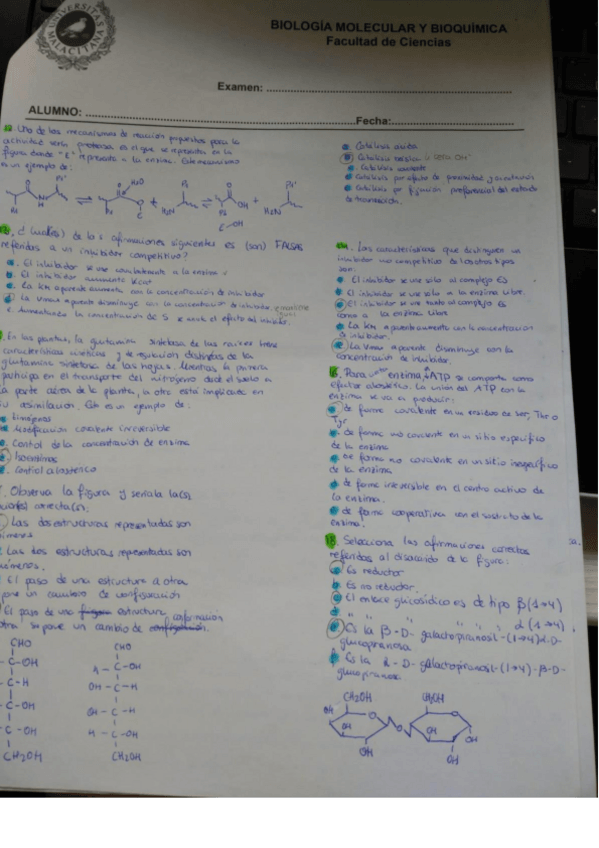 UNIVERSITAS MALACITANA
BIOLOGÍA MOLECULAR Y BIOQUÍMICA
Facultad de Ciencias
Examen:
ALUMNO:
Fecha:
Uno de los mecanismos de reacción propuestos para la
actividad serín proteasa es el que se representa en la
figura donde "E" representa a la enzima. Este mecanismo
es un ejemplo de:
a. Catálisis ácida
Catálisis básica
Catálisis covalente
Catálisis por efecto de proximidad y orientación
Catálisis por fijación preferencial del estado
de transición.
H2O
H2N
H2N
¿Cuál(es) de las afirmaciones siguientes es (son) FALSAS
referidas a un inhibidor competitivo?
a. El inhibidor se une covalentemente a la enzima
El inhibidor aumenta kcat
La KM aparente aumenta con la concentración de inhibidor
La Vmax aparente disminuye con la concentración de inhibidor.
Aumentando la concentración de S se anula el efecto del inhibidor.
Las características que distinguen un
inhibidor no competitivo de los otros tipos
son:
El inhibidor se une solo al complejo ES
El inhibidor se une solo a la enzima libre.
El inhibidor se une tanto al complejo ES
como a la enzima libre
La KM aparente aumenta con la concentración
de inhibidor.
La Vmax aparente disminuye con la
concentración de inhibidor.
En las plantas, la glutamina sintetasa de las raíces tiene
características cinéticas y de regulación distintas de la
glutamina sintetasa de las hojas. Mientras la primera
participa en el transporte del nitrógeno desde el suelo a
la parte aérea de la planta, la otra está implicada en
su asimilación. Esto es un ejemplo de:
Zimógenos
Modificación covalente irreversible
Control de la concentración de enzima
Isoenzimas
Control alostérico
16. Para una enzima, el ATP se comporta como
efector alostérico. La unión del ATP con la
enzima se va a producir:
de forma covalente en un residuo de Ser, Thr o
Tyr
de forma no covalente en un sitio específico
de la enzima
De forma no covalente en un sitio inespecífico
de la enzima
de forma irreversible en el centro activo de
la enzima.
de forma cooperativa con el sustrato de la
enzima.
Observa la figura y señala la(s)
correcta(s):
Las dos estructuras representadas son
Las dos estructuras representadas son
El paso de una estructura a otra
un cambio de configuración
El paso de una estructura
supone un cambio de conformación
CHO
C-OH
C-H
C-OH
C-OH
CH2OH
CHO
H-C-OH
OH-C-H
OH-C-H
H-C-OH
CH2OH
18. Selecciona las afirmaciones correctas
referidas al disacárido de la figura:
Es reductor
b. Es no reductor
El enlace glicosídico es de tipo β(1→4)
" " " " " α(1→4)
Es la β-D-galactopiranosil-(1→4)α-D-
glucopiranosa
Es la α-D-galactopiranosil-(1→4)-β-D-
glucopiranosa
CH2OH CH2OH
OH O O
OH O OH
OH OH OH